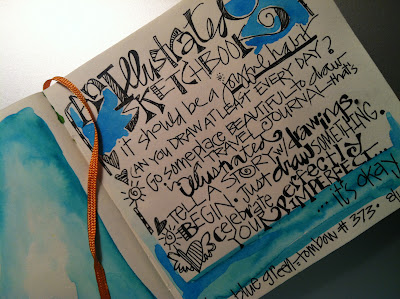 Illustrated
SKETCHBOOK
it should be a
CAN YOU DRAW AT LEAST EVERY DAY?
Go someplace BEAUTIFUL to
TRAVEL JOURNAL that's
illustrated.
TELL A STORY w/ drawings.
BEGIN. Just draw SOMETHING.
celebrate perfectly
YOUR IMPERFECT...
...it's okay
blue green = tombow # 373.